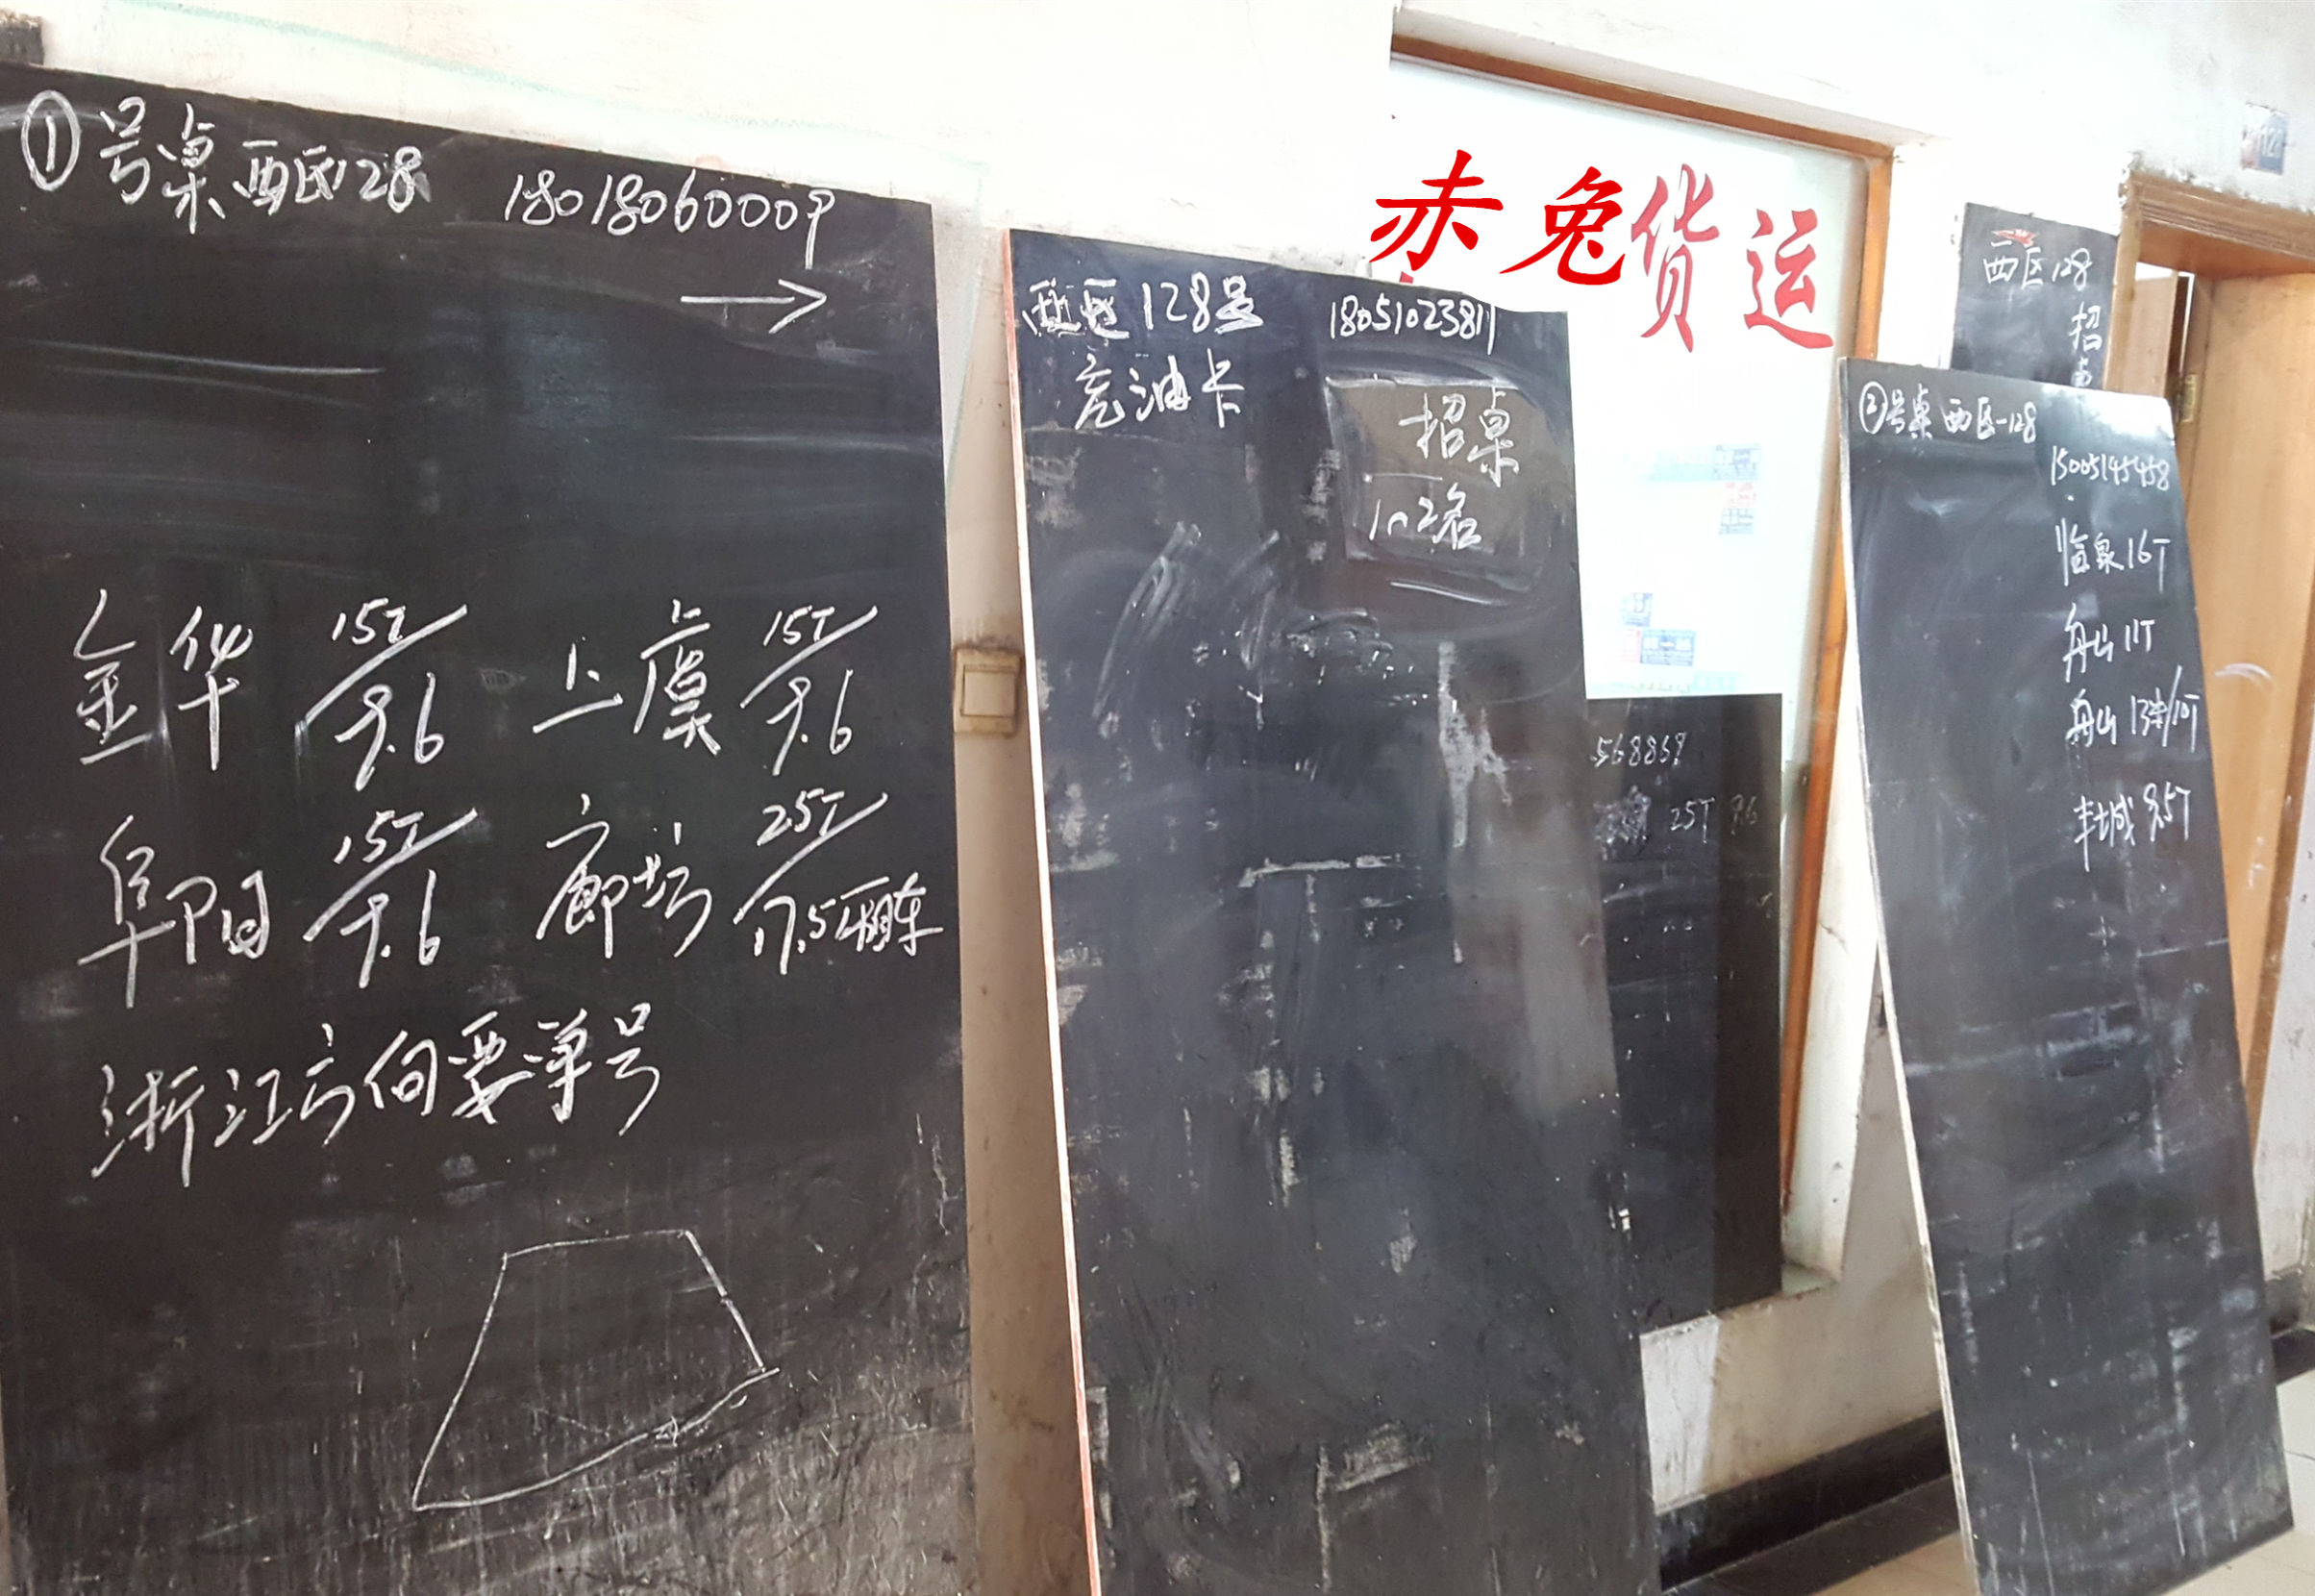 ①号桌 西区128 18018060009
金华 15T/9.6 上虞 15T/9.6
阜阳 15T/9.6 廊坊 25T/17.5
浙江方向要单号
西区128号 18051023811
充油卡
招桌
1~2名
赤兔货运
568869
25T 9.6
西区128
招
②号桌 西区-128
15005145458
临泉16T
舟山11T
舟山13米/10T
丰城9.5T